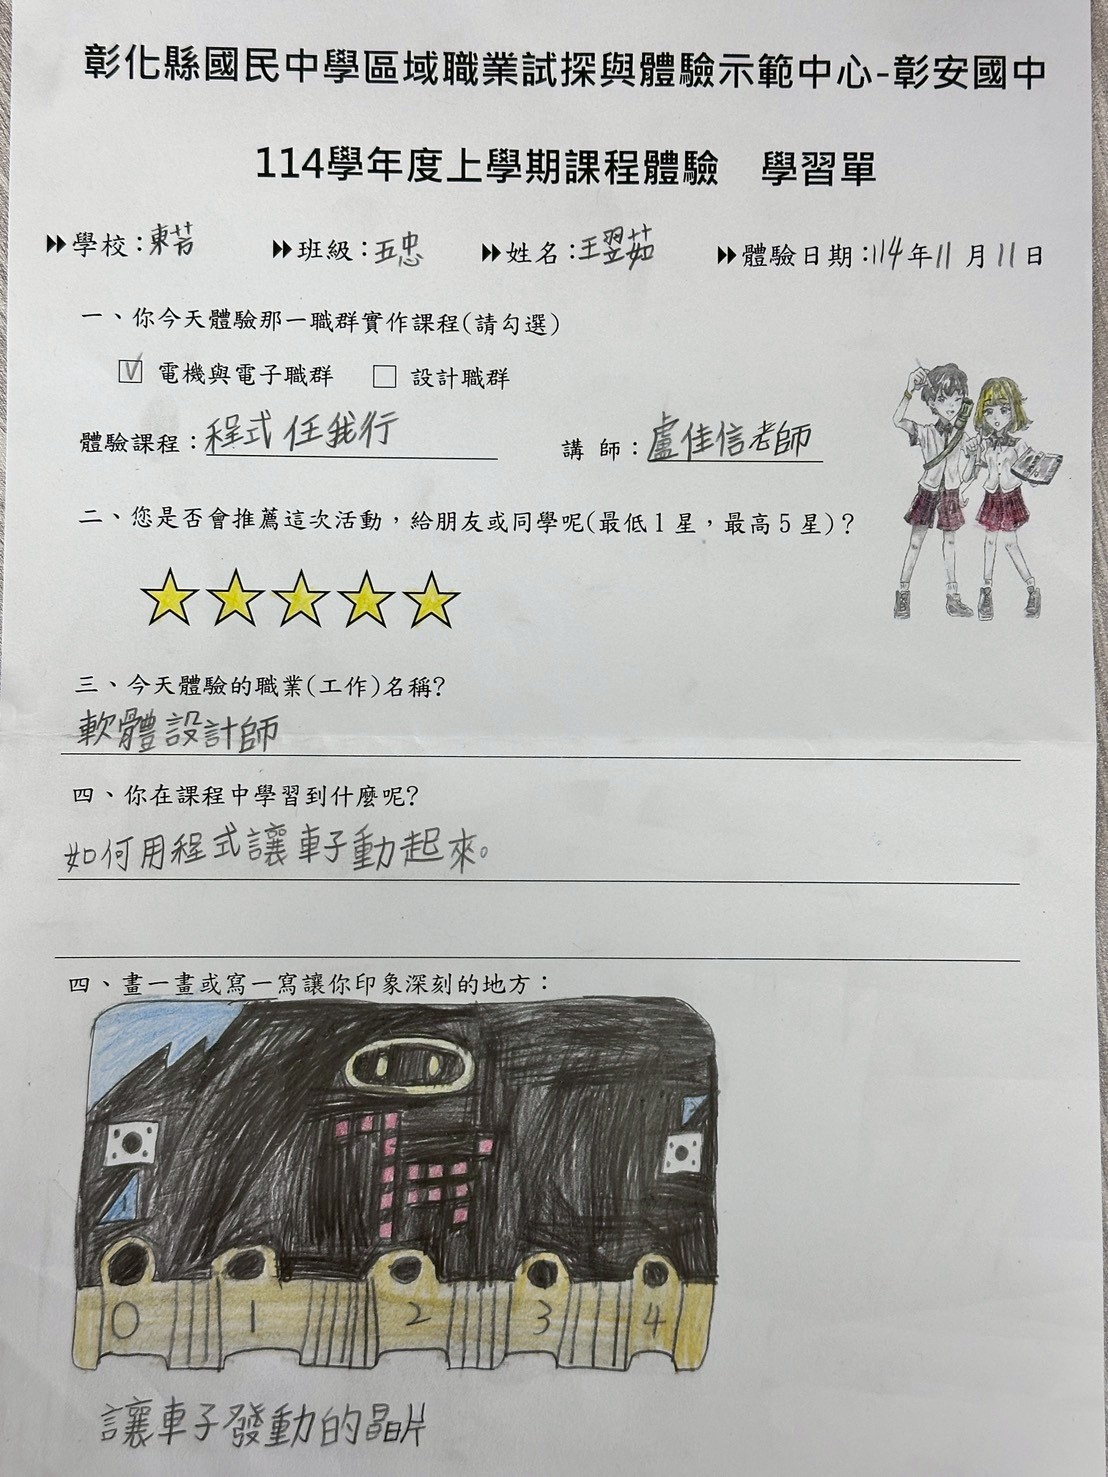 彰化縣國民中學區域職業試探與體驗示範中心-彰安國中
114學年度上學期課程體驗 學習單
學校：東芳 班級：五忠 姓名：王翌茹 體驗日期：114年11月11日
一、你今天體驗那一職群實作課程(請勾選)
V 電機與電子職群 □ 設計職群
體驗課程：程式任我行 講 師：盧佳信老師
二、您是否會推薦這次活動，給朋友或同學呢(最低1星，最高5星)？
三、今天體驗的職業(工作)名稱?
軟體設計師
四、你在課程中學習到什麼呢?
如何用程式讓車子動起來。
四、畫一畫或寫一寫讓你印象深刻的地方：
0 1 2 3 4
讓車子發動的晶片